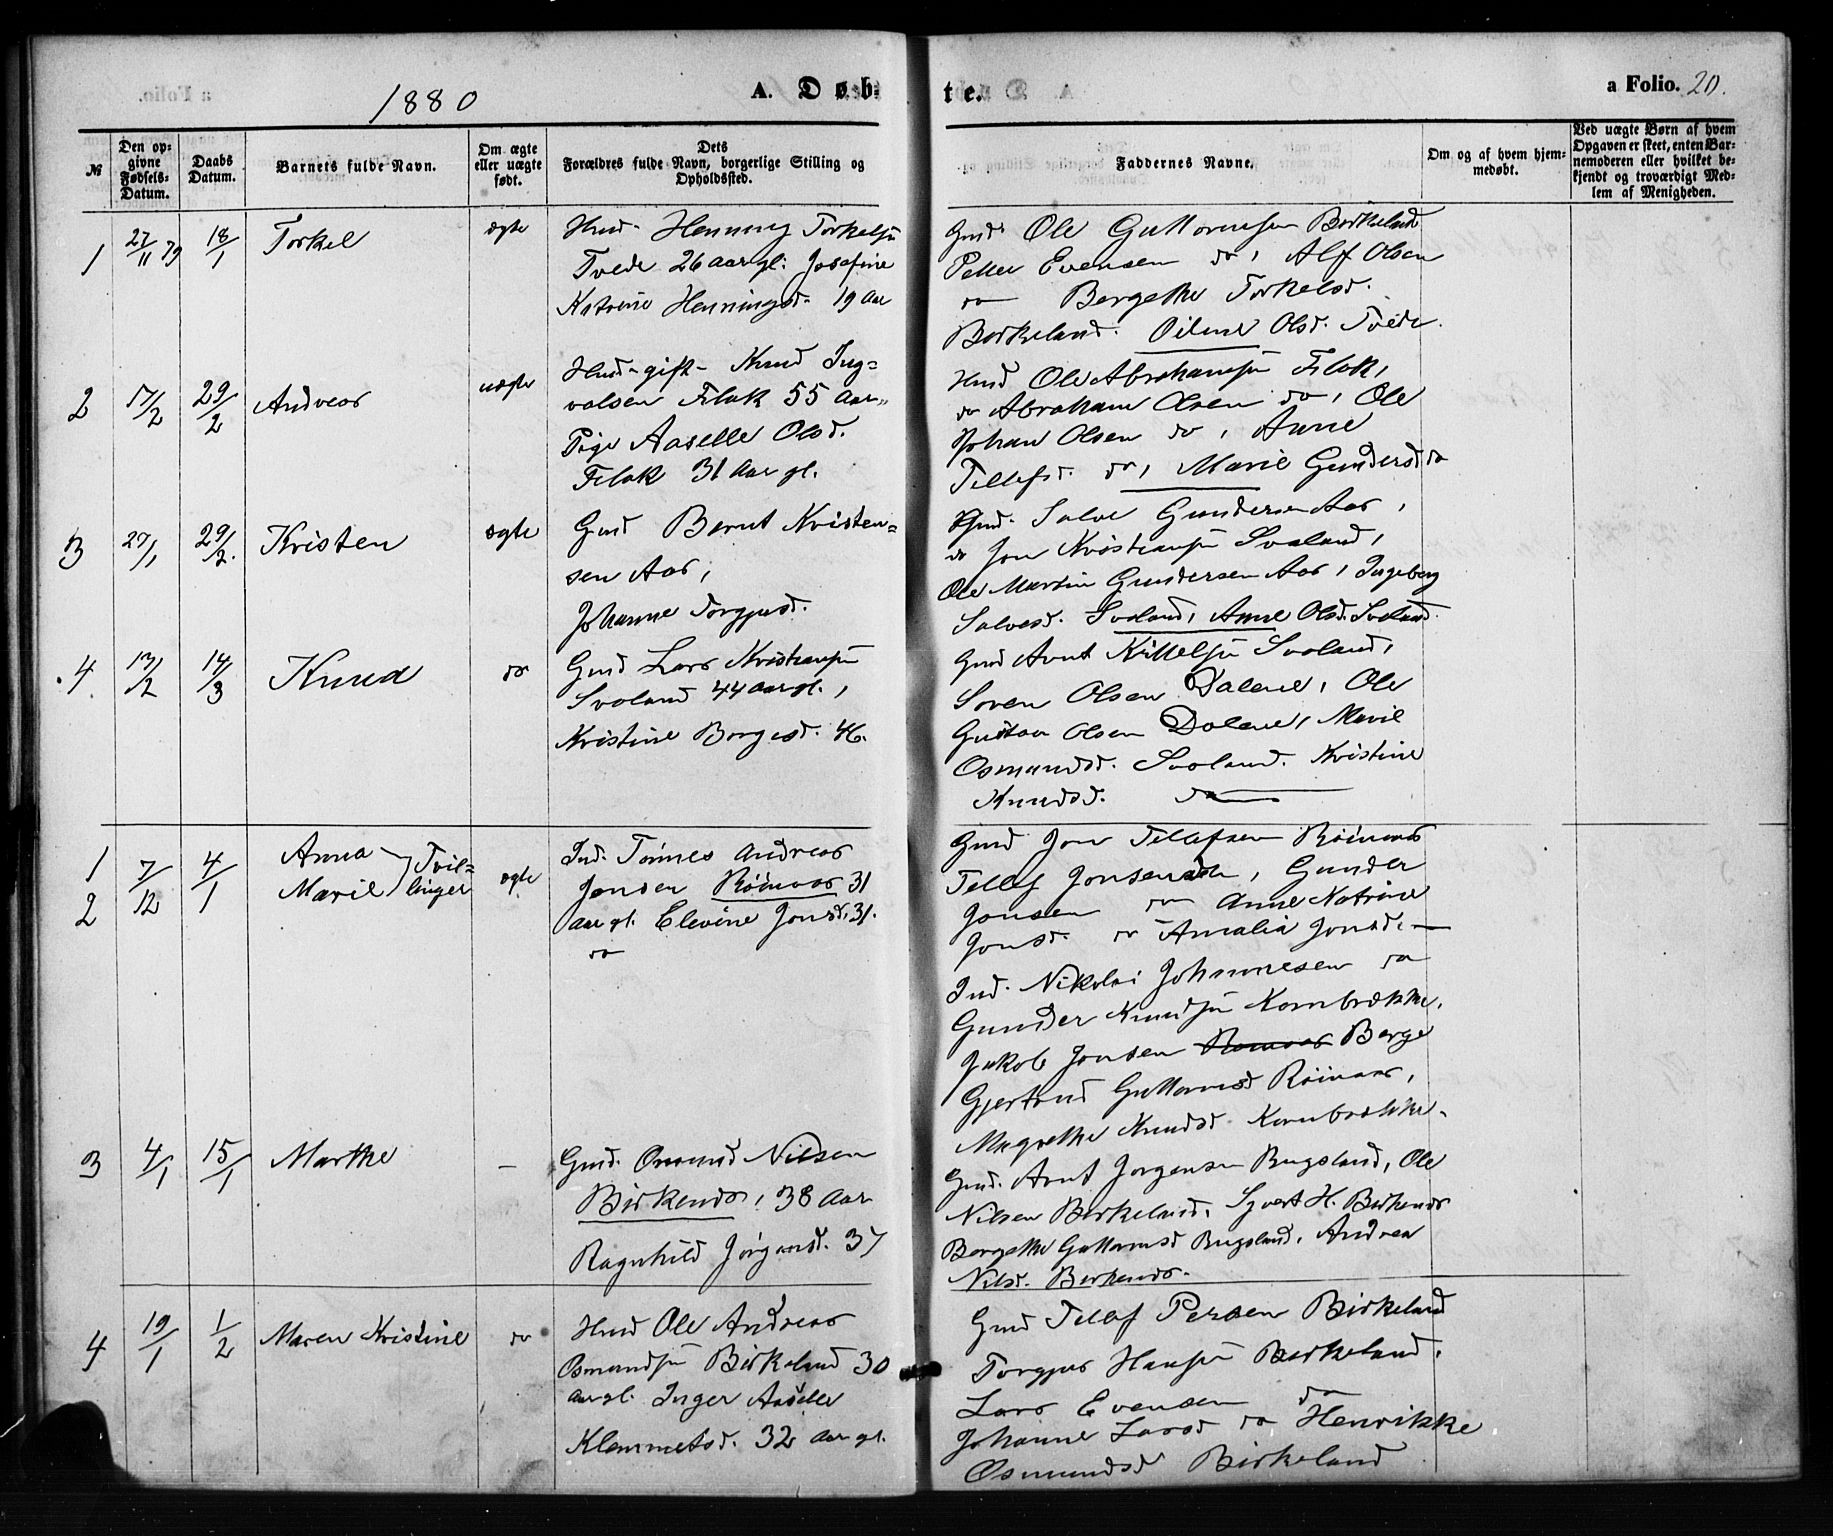 1880
A. Døb-
te.
a Folio. 20.
№
Den op-
givne
Fødsels-
Datum.
Daabs
Datum.
Barnets fulde Navn.
Om ægte
eller uægte
født.
Dets
Forældres fulde Navn, borgerlige Stilling og
Opholdssted.
Faddernes Navne.
Om og af hvem hjem-
medøbt.
Ved uægte Børn af hvem
Opgaven er skeet, enten Bar-
nemoderen eller hvilket be-
kjendt og troværdigt Med-
lem af Menigheden.
1
27/11 79
18/1
Torkel
ægte
Hmd. Henning Torkelsn
Tvede 26 aar gl. Josefine
Katrine Henningsd. 19 Aar
Gmd. Ole Guttormsen Birkeland
Peder Evensen do, Alf Olsen
do Bergethe Torkelsd.
Birkeland. Oline Olsd. Tvede.
2
17/2
29/2
Andreas
uægte
Hmd - gift - Knud Ing=
valsen Flak 55 aar
Pige Aaselle Olsd.
Flak 31 Aar gl.
Hmd Ole Abrahamsn Flak,
do Abraham Olsen do, Ole
Johan Olsen do, Anne
Tellefsd. do, Marie Gundersd do
3
27/1
29/2.
Kristen
ægte
Gmd Bernt Kristen=
sen Aas,
Johanne Torgjusd.
Gmd. Salve Gundersen Aas,
do Jon Kristiansn Svaland,
Ole Martin Gundersen Aas, Ingeborg
Salvesd. Svaland, Anne Olsd. Svaland.
4
13/2
14/3
Knud
do
Gmd Lars Kristiansn
Svaland 44 aar gl.,
Kristine Borgesd. 46.
Gmd Arnt Kittelsn Svaland,
Søren Olsen Dalene, Ole
Gustav Olsen Dalene, Marie
Osmundsd. Svaland. Kristine
Knudsd. do
1
2
7/12
4/1
Anna
Marie
Tvil=
linger
ægte
Ind. Tønnes Andreas
Jensen Røinaas 31
aar gl. Elevine Jonsd. 31.
do
Gmd Jon Tellefsen Røinaas
Tellef Jonsen do, Gunder
Jonsen do Anne Katrine
Jonsd. do Amalia Jonsd. —
Ind. Nikolai Johannesen do
Gunder Knudsn Kornbrække.
Jakob Jonsen Røinaas Berge
Gjertrud Guttormsd Røinaas,
Magrethe Knudsd Kornbrække.
3
4/1
15/1
Marthe
—
Gmd. Osmund Nilsen
Birkenes, 38 Aar
Ragnhild Jørgensd. 37
Gmd. Arnt Jørgensen Bugsland, Ole
Nilsen Birkeland, Syvert H. Birkenes
Bergethe Guttormsd Bugsland, Andrea
Nilsd. Birkenes.
4
19/1
1/2
Maren Kristine
do
Hmd Ole Andreas
Osmundsn Birkeland 30
aar gl. Inger Aaselle
Klemmetsd. 32 Aar gl.
Gmd Tellef Persen Birkeland
Torgjus Hansn Birkeland.
Lars Evensen do
Johanne Larsd do Henrikke
Osmundsd Birkeland